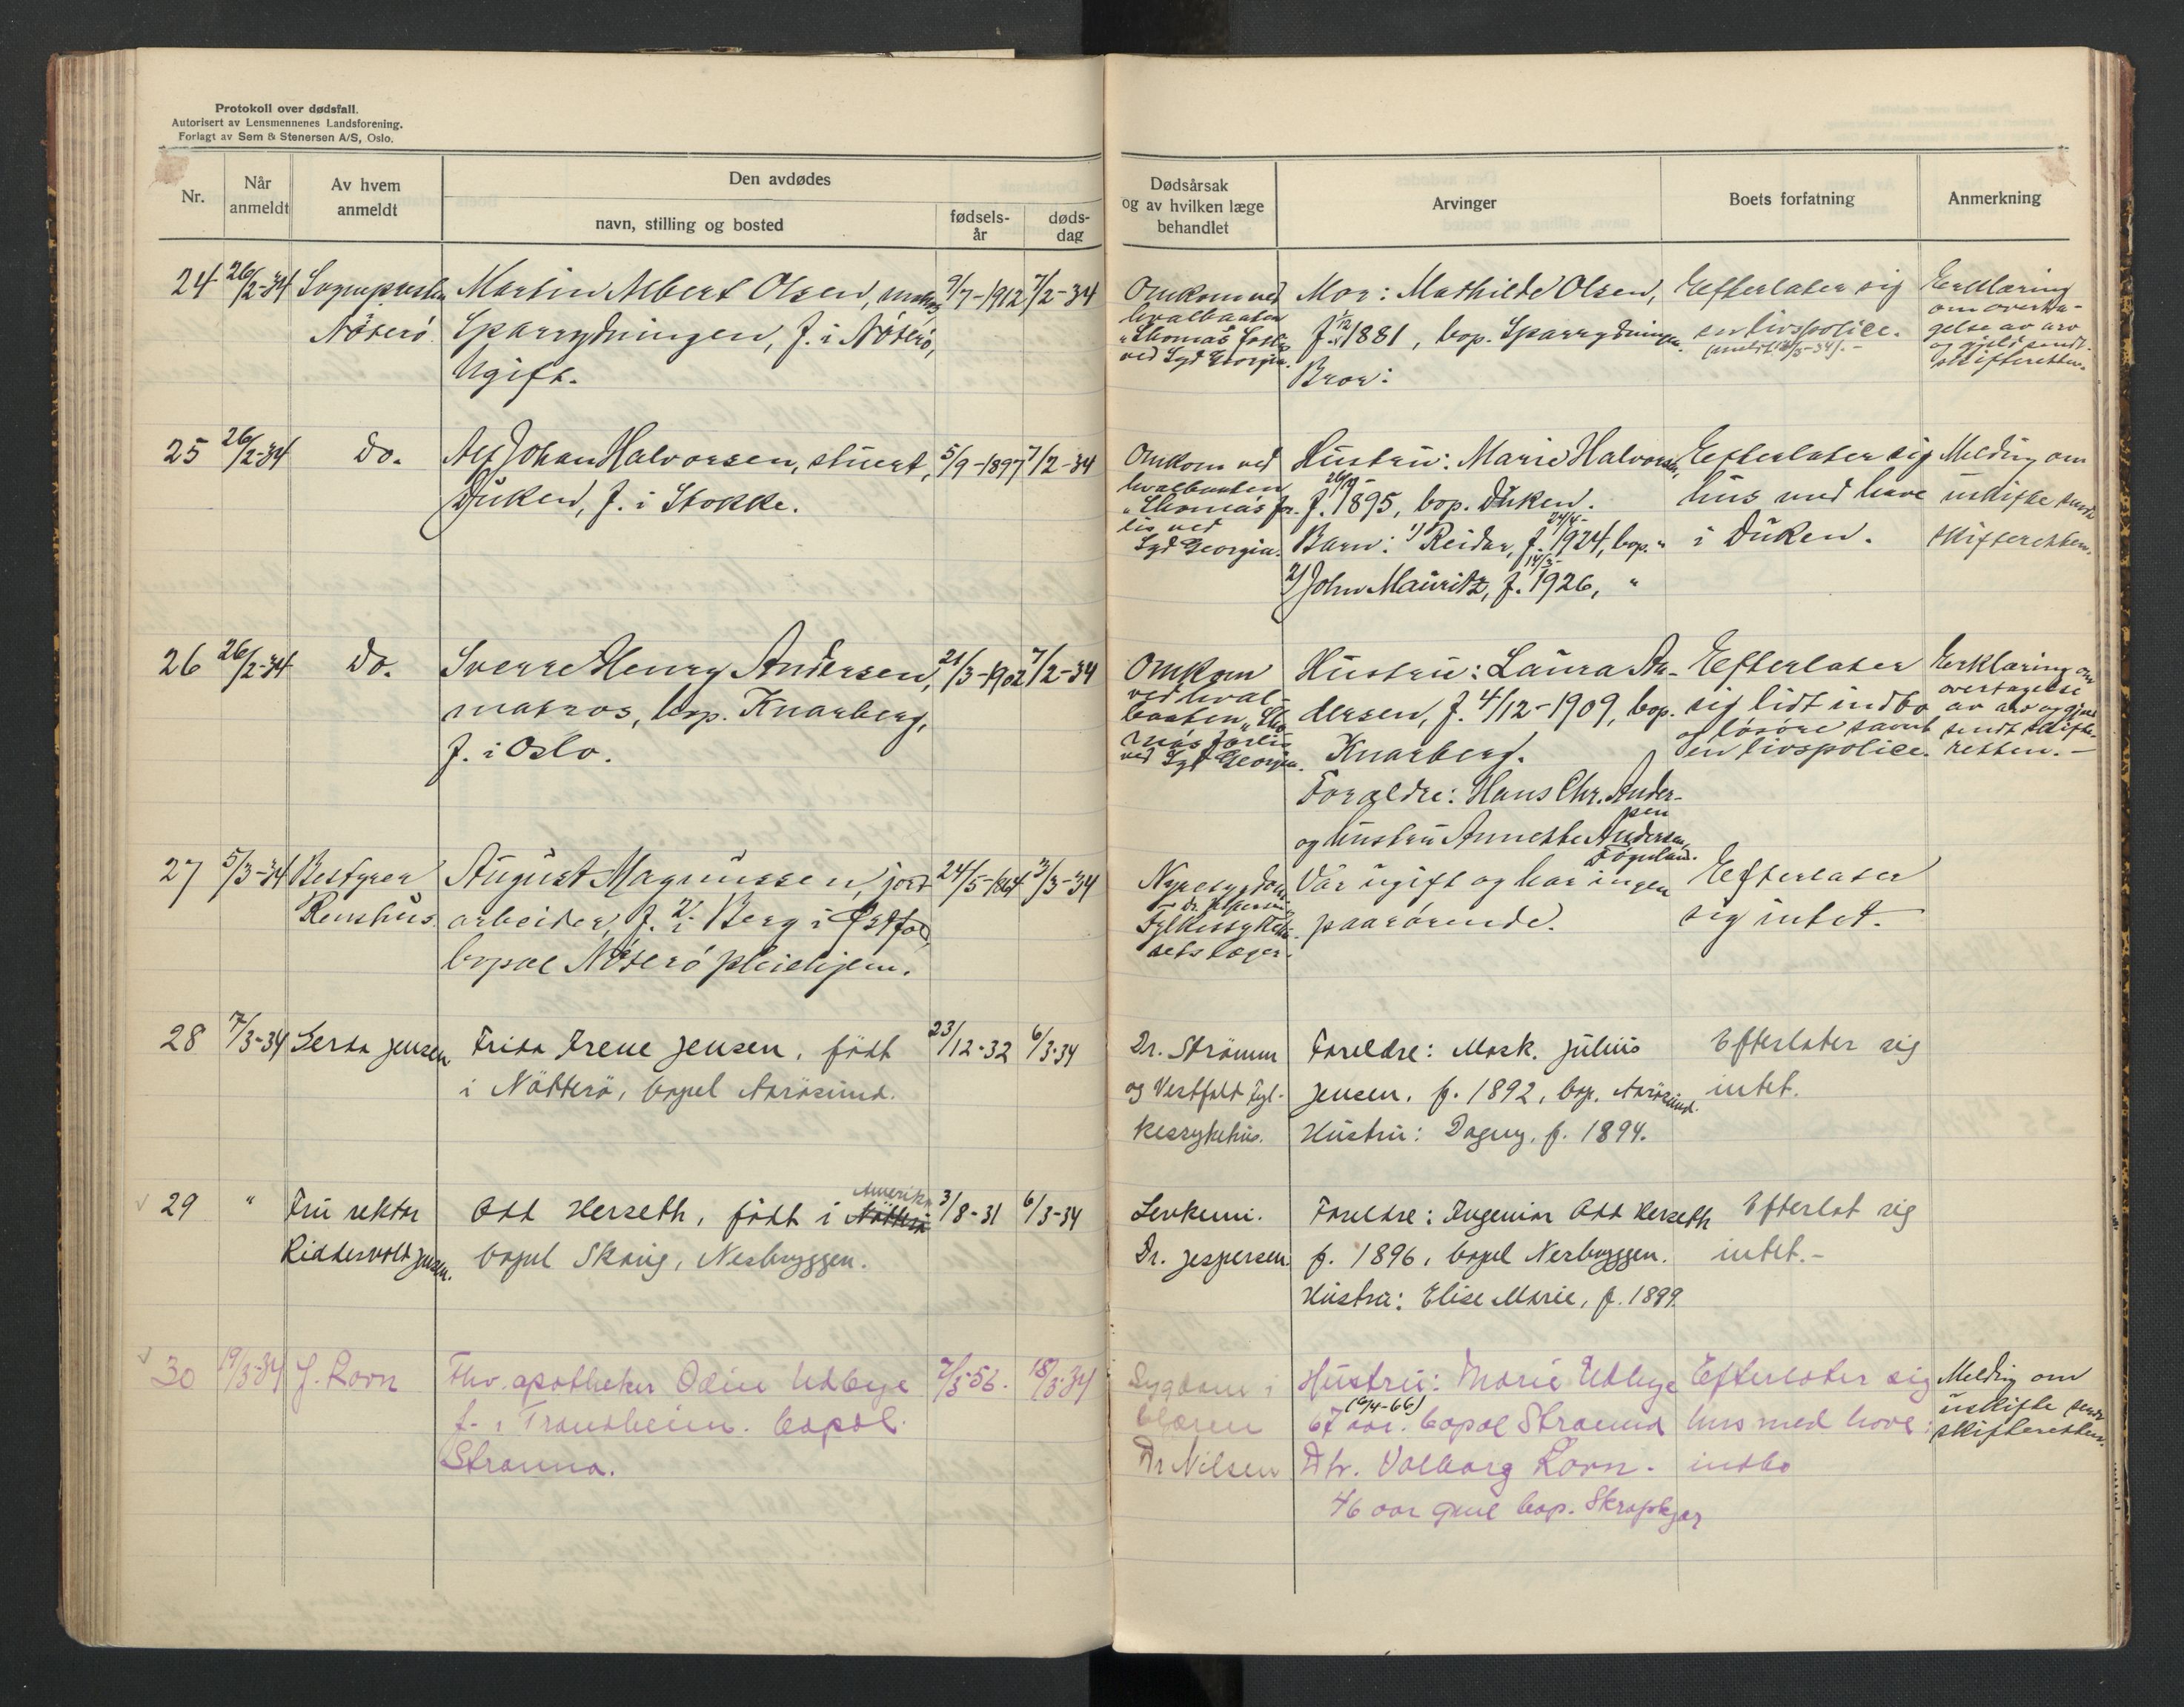 Protokoll over dødsfall.
Autorisert av Lensmennenes Landsforening.
Forlagt av Sem & Stenersen A/S, Oslo.
Nr.
Når anmeldt
Av hvem anmeldt
Den avdødes
navn, stilling og bosted
fødsels-år
døds-dag
Dødsårsak og av hvilken læge behandlet
Arvinger
Boets forfatning
Anmerkning
24 26/2-34 Sognepresten Martin Albert Olsen, 9/7-1912 7/2-34
Nøterø Sparrydningen, f. i Nøterø,
Ugift.
Omkom ved
hvalbaaten
"Thomas' forlis
ved Syd Georgia.
Mor: Mathilde Olsen,
f. 1881, bop. Sparrydningen.
Bror:
Efterlater sig
en livspolice.
Erklæring
om overta-
gelse av arv
og gjeld sendt
skifteretten.
25 26/2-34 Do. Johan Halvorsen, stuert, 5/9-1897 7/2-34
Duken, f. i Stokke.
Omkom ved
hvalbaaten
"Thomas' for-
lis ved
Syd Georgia.
Hustru: Marie Halvorsen,
f. 1895, bop. Duken.
Barn: 1) Reidar, f. 24/4-1924, bop. "
2) John Mauritz, f. 14/3-1926, "
Efterlater sig
hus med have
i Duken.
Melding om
uskifte sendt
skifteretten.
26 26/2-34 Do. Sverre Henry Andersen, 21/3-1902 7/2-34
matros, bop. Knarberg,
f. i Oslo.
Omkom
ved hval-
baaten "Tho-
mas' forlis
ved Syd Georgia.
Hustru: Laura An-
dersen, f. 4/12-1909, bop.
Knarberg.
Forældre: Hans Chr. Ander-
sen
og hustru Annette Andersen,
Efterlater
sig lidt indbo
og løsøre samt
en livspolice.
Erklæring om
overtagelse
av arv og gjeld
sendt skifte-
retten.-
27 5/3-34 Bestyrer August Magnussen, jord- 24/5-1864 3/3-34
Renshus arbeider, f. i Berg i Østfold,
bopæl Nøterø pleiehjem.
Nyresygdom
Dr. Jespersen,
Fylkessykehu-
sets læger.
Var ugift og har ingen
paarørende.
Efterlater
sig intet.
28 7/3-34 Gerda Jensen Frida Irene Jensen, født 23/12-32 6/3-34
i Nötterö, bopel Aarösund.
Dr. Strömm
og Vestfold Fyl-
kessykehus.
Foreldre: Mask. Julius
Jensen, f. 1892, bop. Aarösund.
Hustru: Dagny, f. 1894.
Efterlater sig
intet.
29 " Fru rektor Odd Herseth, född i Nötterö Amerika 3/8-31 6/3-34
Riddervold Jensen. bopel Skaug, Nesbryggen.
Levkemi.
Dr. Jespersen
Foreldre: Ingeniør Odd Herseth
f. 1896, bopel Nesbryggen.
Hustru: Elise Marie, f. 1899.
Efterlot sig
intet.-
30 19/3-34 J. Ravn Fhv. apotheker Odin Udbye 7/3-56. 18/3-34
f. i Trondheim. bopæl
Stranna.
Sygdom i
blæren
Dr Nilsen
Hustru: Marie Udbye
(6/4-66)
67 aar. bopæl Stranna
Dtr. Valborg Ravn.
46 aar gml bop.
Efterlater sig
hus med have
indbo
Melding om
uskifte sendt
skifteretten.